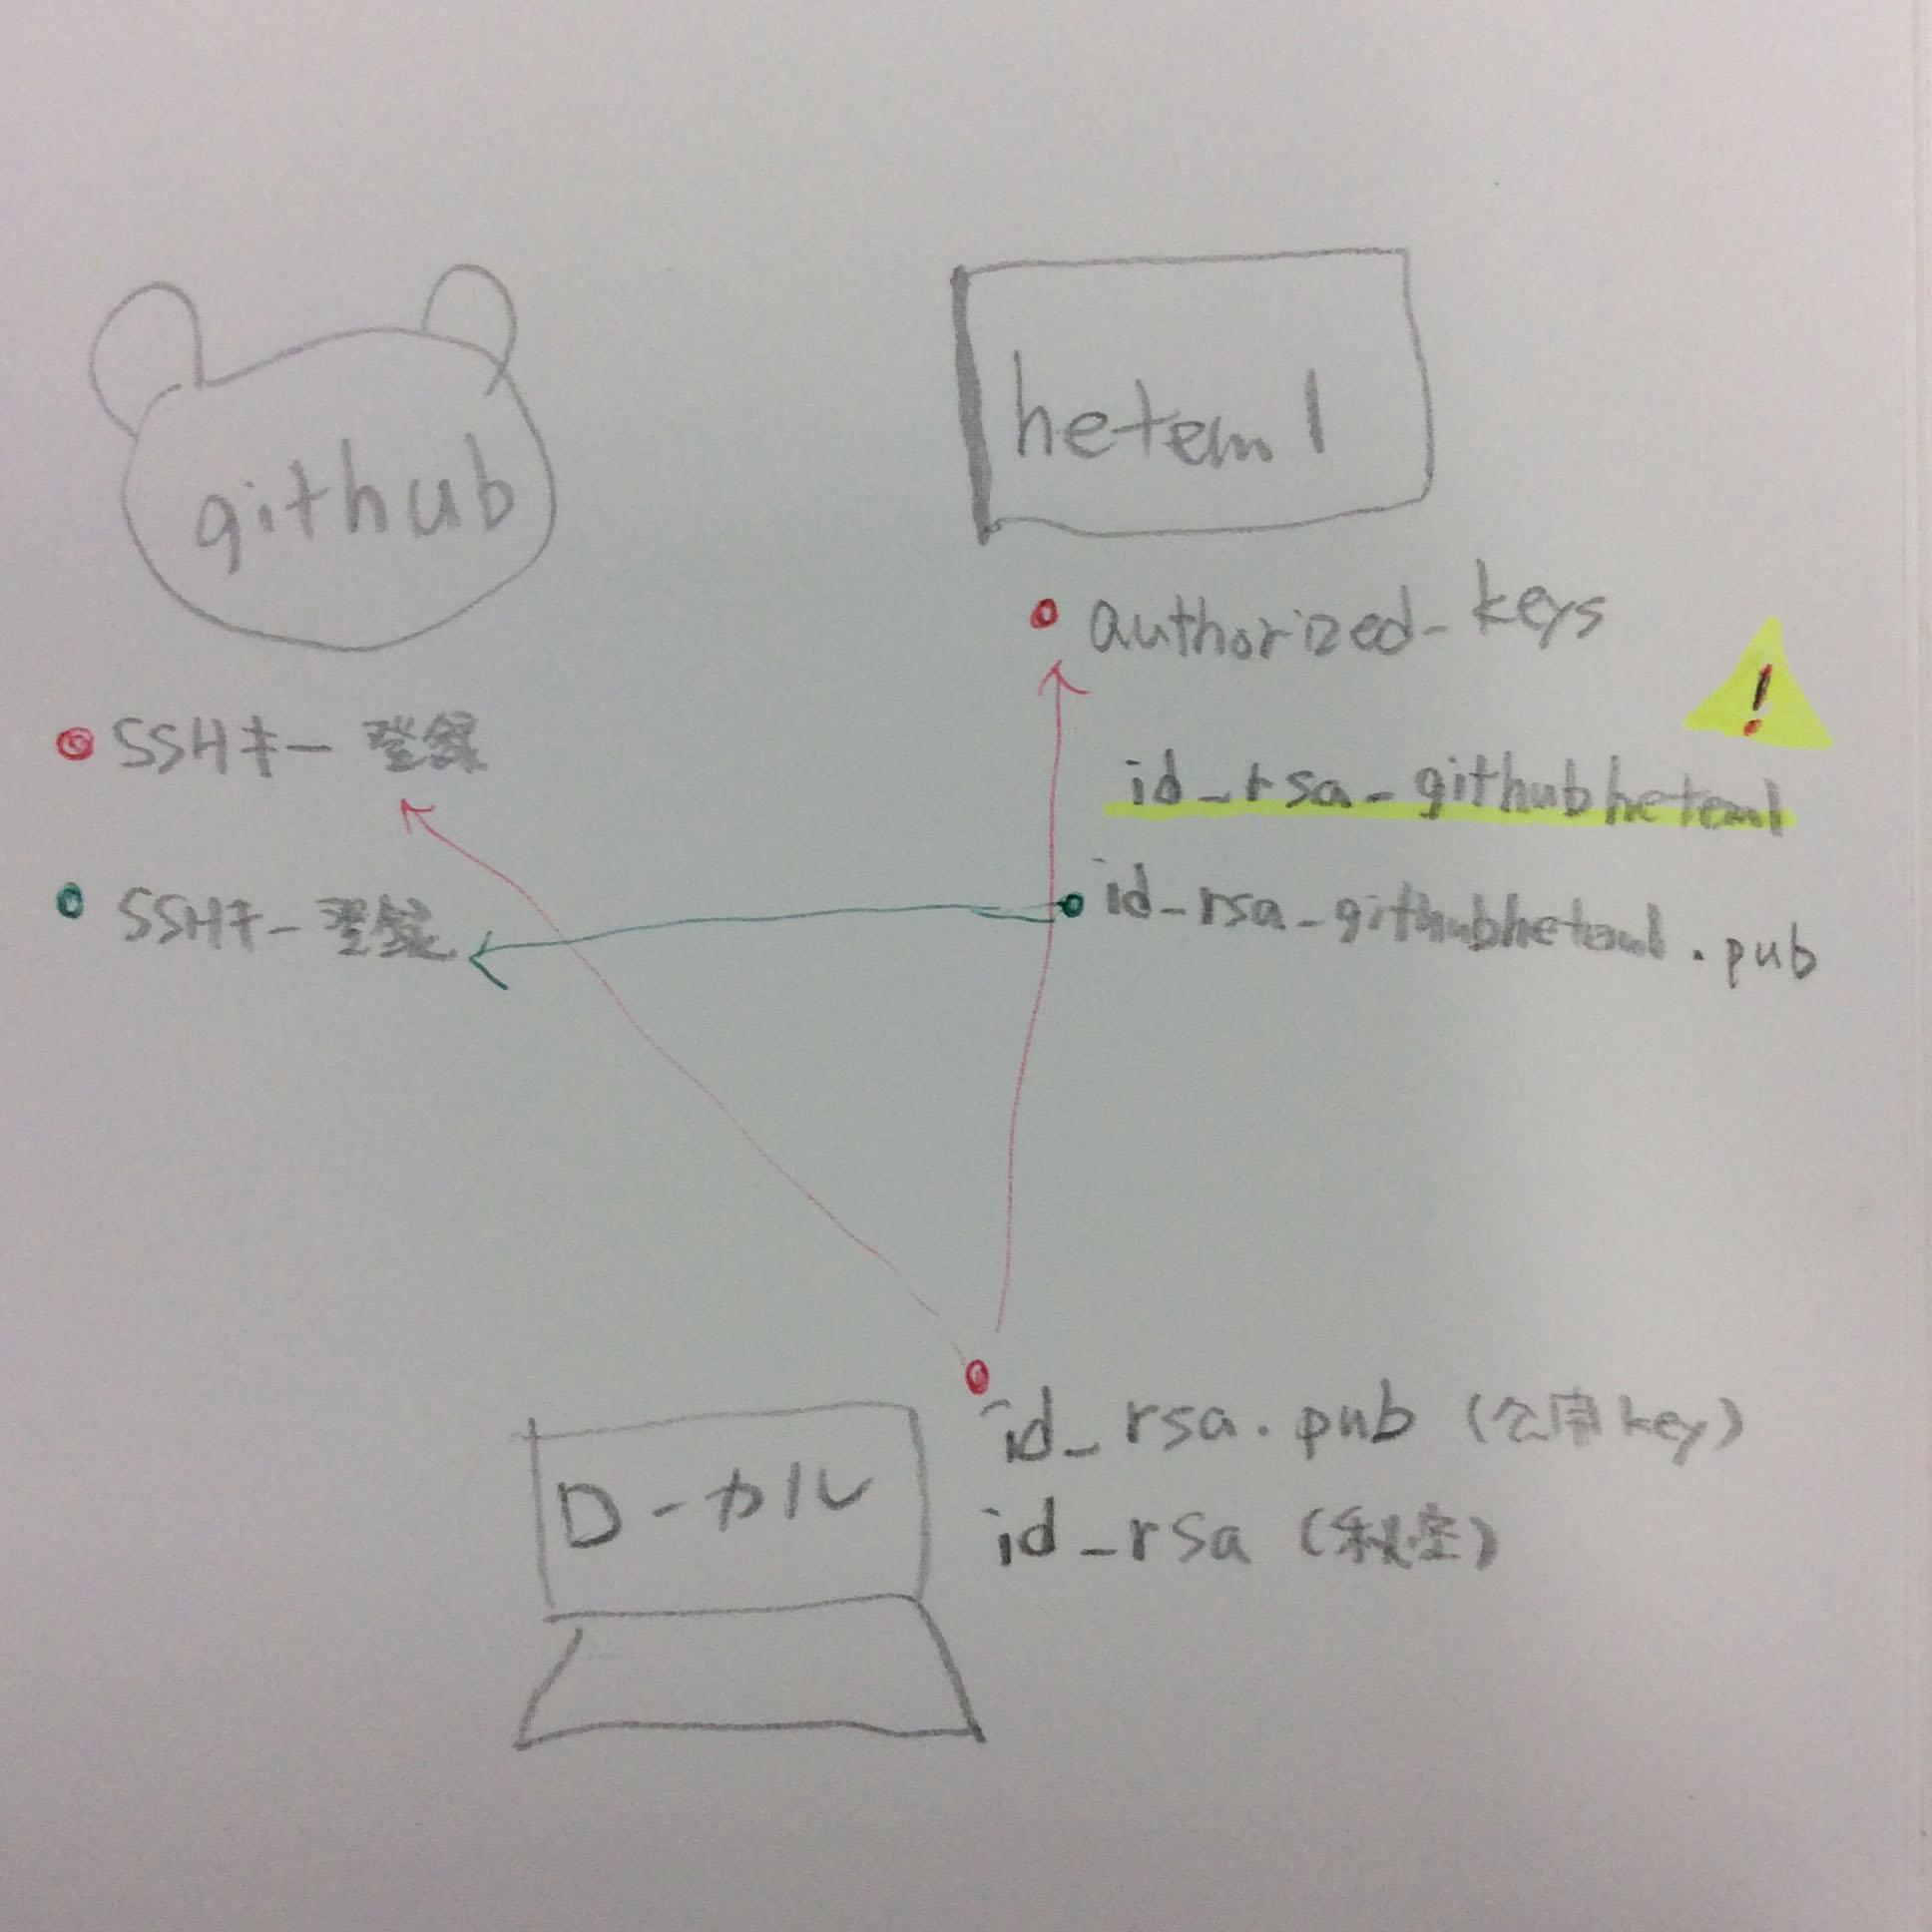 github
heteml
authorized_keys
!
SSHキー登録
id_rsa_githubheteml
SSHキー登録
id_rsa_githubheteml.pub
id_rsa.pub (公開key)
ローカル
id_rsa (秘密)